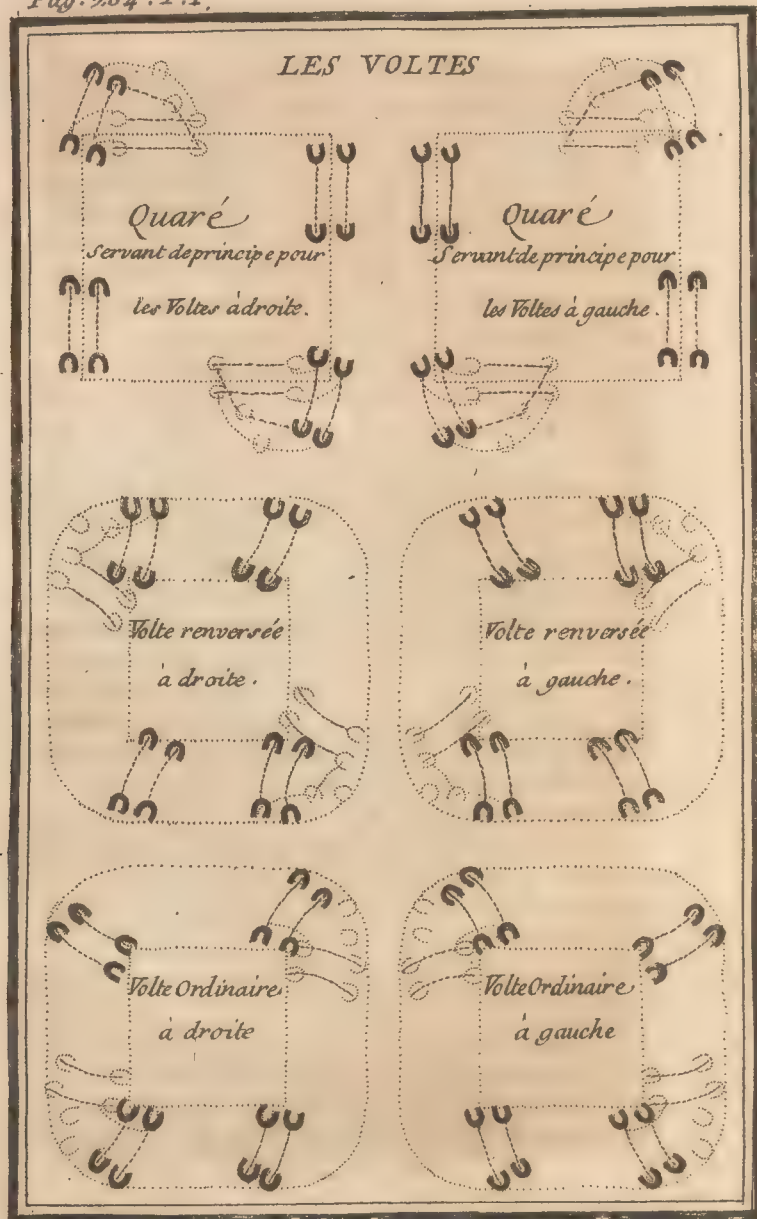 LES VOLTES
Quaré
Servant de principe pour
les Voltes à droite.
Quaré
Servant de principe pour
les Voltes à gauche.
Volte renversée
à droite.
Volte renversée
à gauche.
Volte Ordinaire
à droite
Volte Ordinaire
à gauche